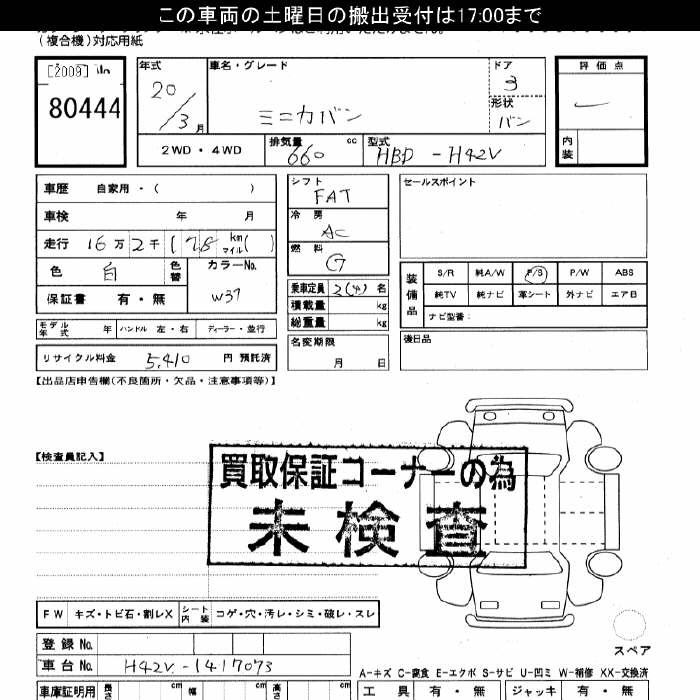 この車両の土曜日の搬出受付は17:00まで
（複合機）対応用紙
[2009]
80444
年式 20/3月
車名・グレード ミニカバン
ドア 3
形状 バン
評価点 —
内装
2WD・4WD
排気量 660 cc
型式 HBD-H42V
車歴 自家用・（ ）
車検 年 月
走行 16万2千178km マイル( )
色 白 色替
カラーNo. W37
保証書 有・無
モデル年式 年 ハンドル 左・右 ディーラー・並行
リサイクル料金 5,410 円 預託済
シフト FAT
冷房 AC
燃料 G
乗車定員 2(4) 名
積載量 kg
総重量 kg
名変期限 月 日
セールスポイント
装備品 S/R 純A/W P/S P/W ABS
純TV 純ナビ 革シート 外ナビ エアB
ナビ型番：
後日品
【出品店申告欄（不良箇所・欠品・注意事項等）】
【検査員記入】
買取保証コーナーの為
未検査
FW キズ・トビ石・割レX シート内装 コゲ・穴・汚レ・シミ・破レ・スレ
スペア
登録No.
車台No. H42V-1417073
A-キズ C-腐食 E-エクボ S-サビ U-凹ミ W-補修 XX-交換済
車庫証明用 長さ cm 幅 cm 高さ cm
工具 有・無 ジャッキ 有・無